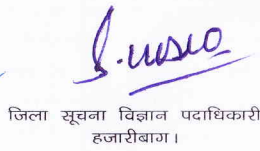 जिला सूचना विज्ञान पदाधिकारी
हजारीबाग।